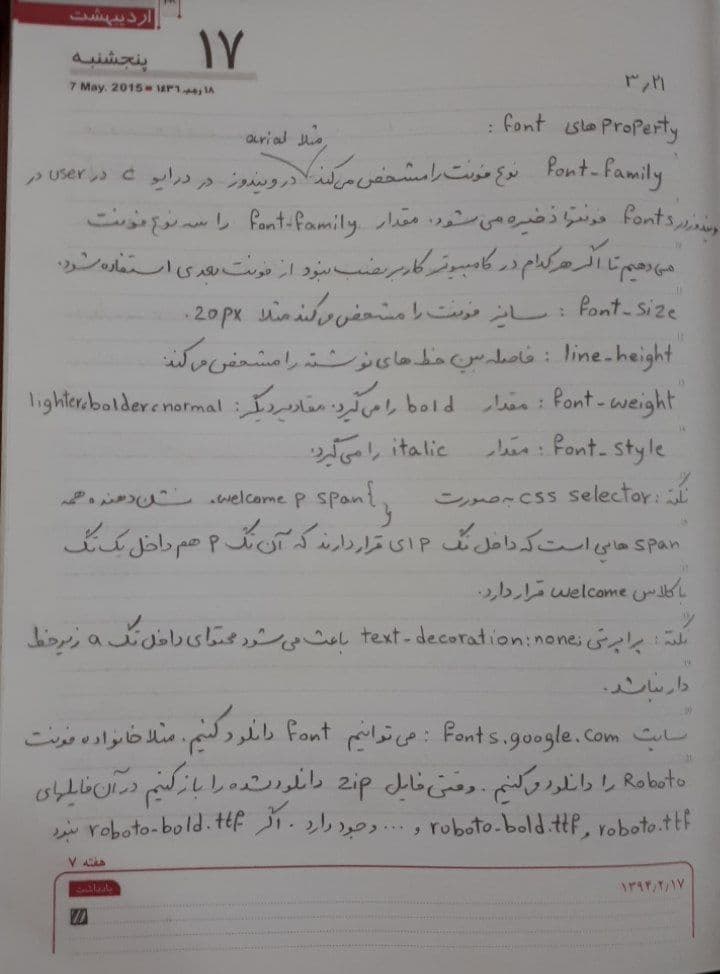 اردیبهشت
۱۷
پنجشنبه
7 May. 2015 ■ ۱۸ رجب ۱۴۳۶
۳٫۲۱
property های font :
مثلا arial
font-family نوع فونت را مشخص می‌کند. در ویندوز در درایو c در user در
ویندوز در fonts فونتها ذخیره می شود. مقدار font-family را سه نوع فونت
می دهیم تا اگر هر کدام در کامپیوتر کاربر نصب نبود از فونت بعدی استفاده شود.
font-size : سایز فونت را مشخص می‌کند مثلا 20px.
line-height : فاصله بین خط های نوشته را مشخص می‌کند.
font-weight : مقدار bold را می‌گیرد. مقادیر دیگر: lighter، bolder، normal
font-style : مقدار italic را می‌گیرد.
نکته : css selector به صورت .welcome p span{ } نشان دهنده همه
span هایی است که داخل تگ p ای قرار دارند که آن تگ p هم داخل یک تگ
با کلاس welcome قرار دارد.
نکته : پراپرتی text-decoration:none; باعث می شود محتوای داخل تگ a زیر خط
دار نباشد.
سایت fonts.google.com : می توانیم font دانلود کنیم. مثلا خانواده فونت
Roboto را دانلود می‌کنیم. وقتی فایل zip دانلود شده را باز کنیم در آن فایلهای
roboto.ttf، roboto-bold.ttf و ... وجود دارد. اگر roboto-bold.ttf نبود
هفته ۷
یادداشت
۱۳۹۴/۲/۱۷